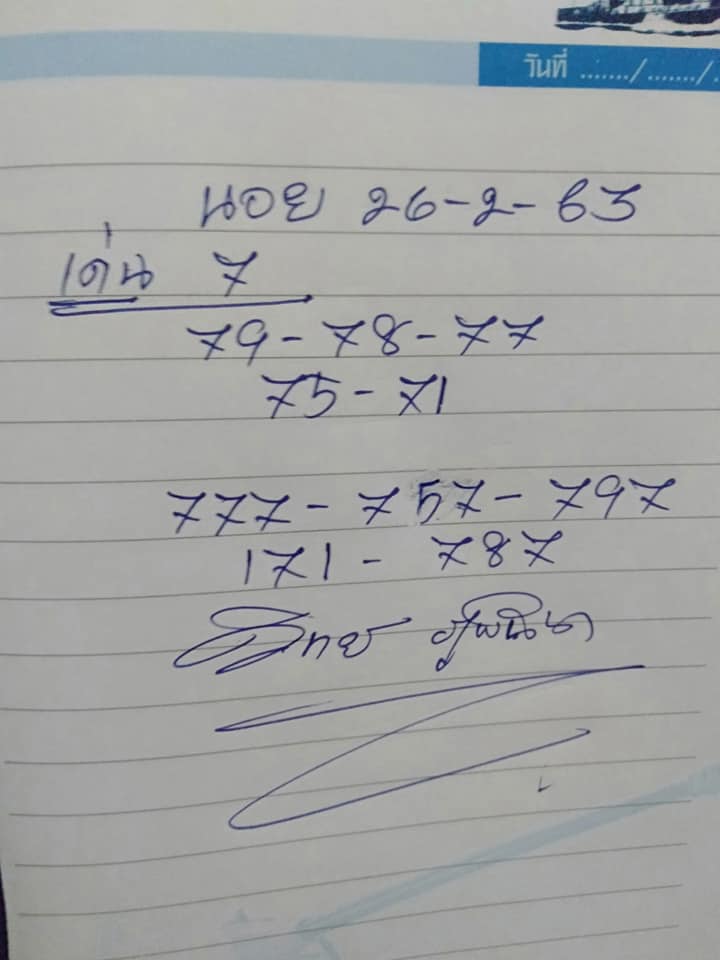 วันที่ ......./......./.
นอย 26-2-63
เด่น 7
79-78-77
75-71
777-757-797
171-787